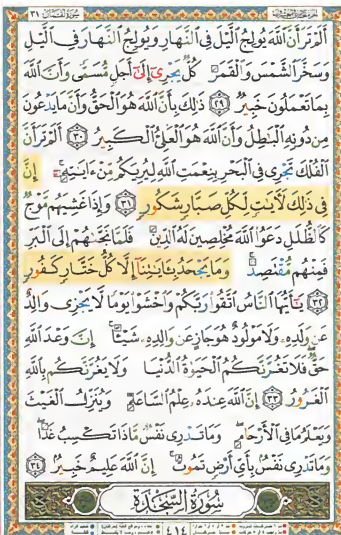 سورة لقمان ٣١
أَلَمْ تَرَ أَنَّ اللَّهَ يُولِجُ الَّيْلَ فِي النَّهَارِ وَيُولِجُ النَّهَارَ فِي الَّيْلِ
وَسَخَّرَ الشَّمْسَ وَالْقَمَرَ كُلٌّ يَجْرِي إِلَىٰ أَجَلٍ مُّسَمًّى وَأَنَّ اللَّهَ
بِمَا تَعْمَلُونَ خَبِيرٌ ٢٩ ذَٰلِكَ بِأَنَّ اللَّهَ هُوَ الْحَقُّ وَأَنَّ مَا يَدْعُونَ
مِن دُونِهِ الْبَاطِلُ وَأَنَّ اللَّهَ هُوَ الْعَلِيُّ الْكَبِيرُ ٣٠ أَلَمْ تَرَ أَنَّ
الْفُلْكَ تَجْرِي فِي الْبَحْرِ بِنِعْمَتِ اللَّهِ لِيُرِيَكُم مِّنْ ءَايَاتِهِ إِنَّ
فِي ذَٰلِكَ لَءَايَاتٍ لِّكُلِّ صَبَّارٍ شَكُورٍ ٣١ وَإِذَا غَشِيَهُم مَّوْجٌ
كَالظُّلَلِ دَعَوُا اللَّهَ مُخْلِصِينَ لَهُ الدِّينَ فَلَمَّا نَجَّاهُمْ إِلَى الْبَرِّ
فَمِنْهُم مُّقْتَصِدٌ وَمَا يَجْحَدُ بِـَٔايَاتِنَا إِلَّا كُلُّ خَتَّارٍ كَفُورٍ
٣٢ يَا أَيُّهَا النَّاسُ اتَّقُوا رَبَّكُمْ وَاخْشَوْا يَوْمًا لَّا يَجْزِي وَالِدٌ
عَن وَلَدِهِ وَلَا مَوْلُودٌ هُوَ جَازٍ عَن وَالِدِهِ شَيْـًٔا إِنَّ وَعْدَ اللَّهِ
حَقٌّ فَلَا تَغُرَّنَّكُمُ الْحَيَوٰةُ الدُّنْيَا وَلَا يَغُرَّنَّكُم بِاللَّهِ
الْغَرُورُ ٣٣ إِنَّ اللَّهَ عِندَهُ عِلْمُ السَّاعَةِ وَيُنَزِّلُ الْغَيْثَ
وَيَعْلَمُ مَا فِي الْأَرْحَامِ وَمَا تَدْرِي نَفْسٌ مَّاذَا تَكْسِبُ غَدًا
وَمَا تَدْرِي نَفْسٌ بِأَيِّ أَرْضٍ تَمُوتُ إِنَّ اللَّهَ عَلِيمٌ خَبِيرٌ ٣٤
سُورَةُ السَّجْدَةِ
٤١٤